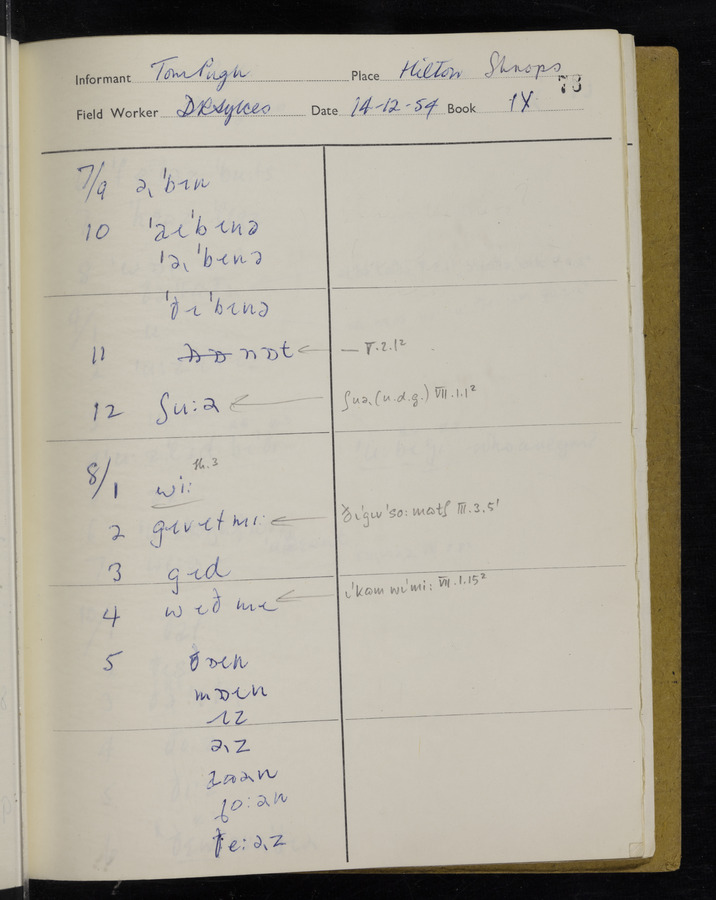 Informant Tom Pugh Place Hilton Shrops 73
Field Worker D R Sykes Date 14-12-54 Book IX
7/9 a, 'bɪn
10 'aɪ'bɪnə
'a, 'bɪnə
'ðɪ'bɪnə
11 nɒt ← — V.2.12
12 ʃu:ə ← ʃuə, (n.d.g.) VII.1.12
8/1 wi: th.3
2 gɪvɪt mi: ← ðɪgɪv'so:mətʃ III.3.51
3 gɪd
4 wɪð mɪ ← ɪ'kɒm wɪ'mi: VII.1.152
5 ðɒɛn
mɒɛn
ɪz
a,z
fo:ən
ðe:ə,z